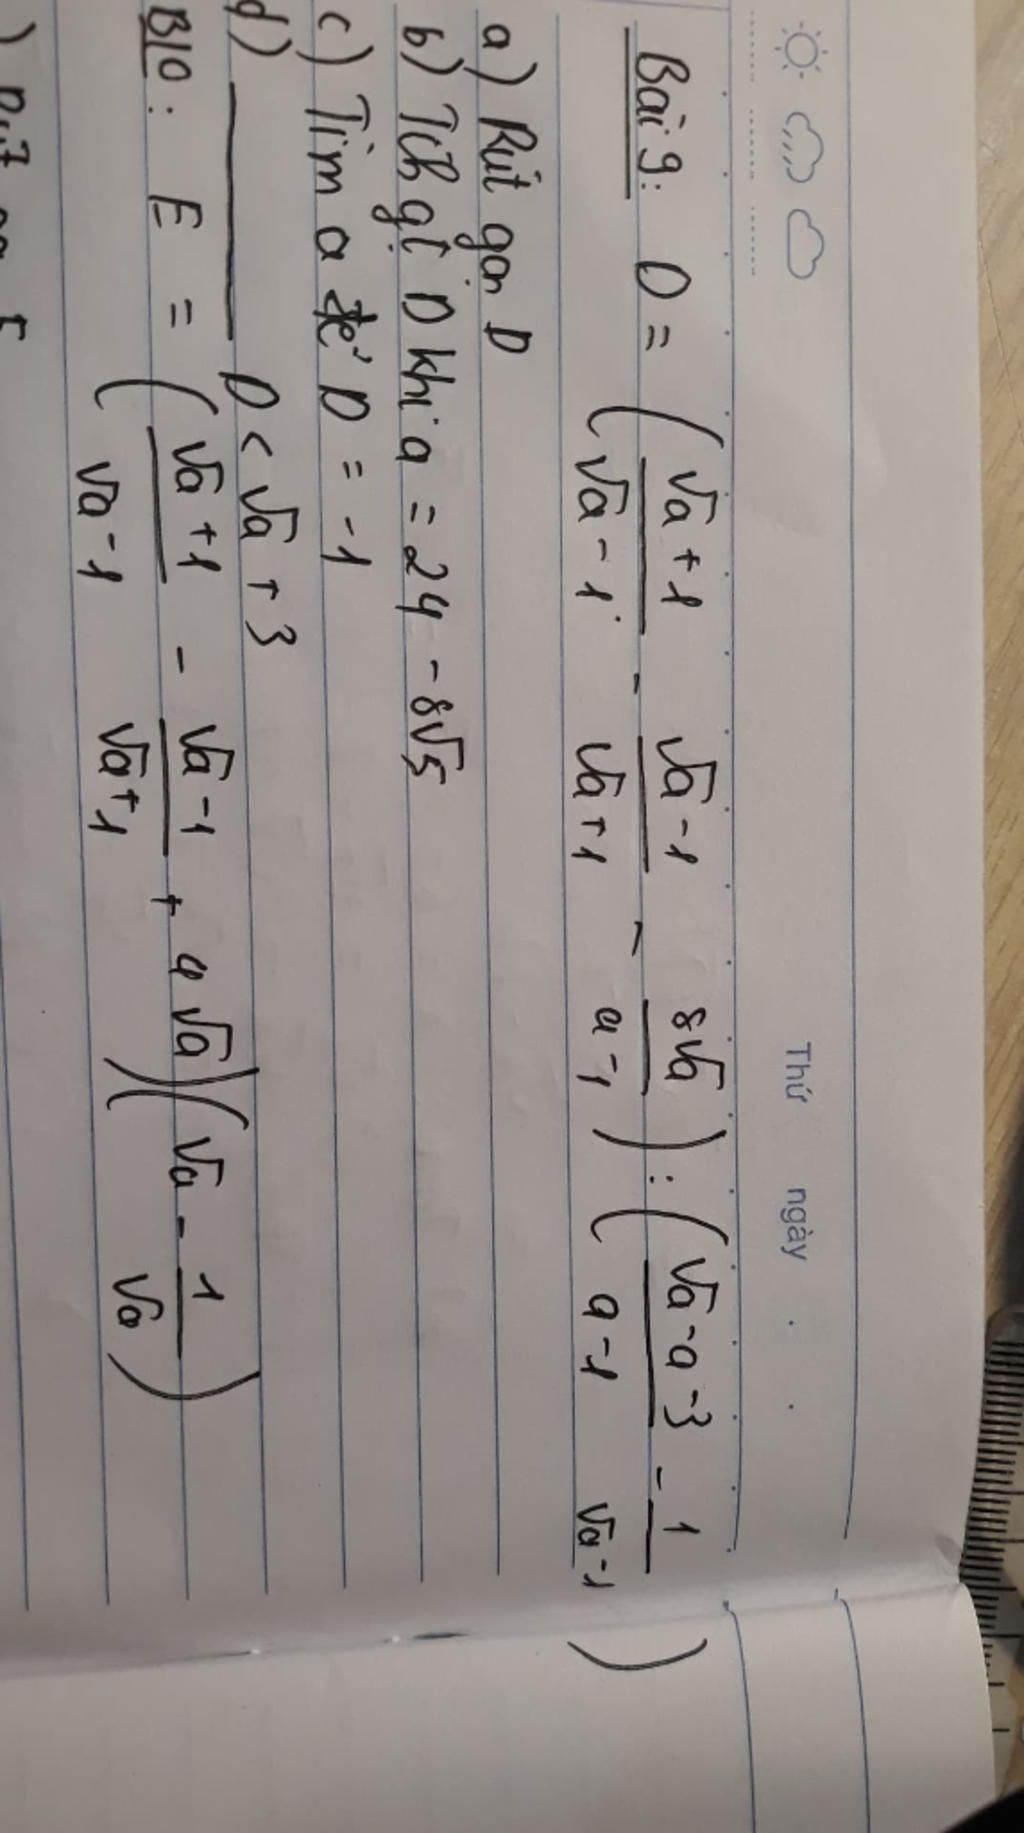 Thứ ngày
Bài 9: D = ( (√a + 1)/(√a - 1) - (√a - 1)/(√a + 1) - 8√a/(a - 1) ) : ( (√a - a - 3)/(a - 1) - 1/(√a - 1) )
a) Rút gọn D
b) Tích gt D khi a = 24 - 8√5
c) Tìm a để D = -1
d) ____ D < √a + 3
B10: E = ( (√a + 1)/(√a - 1) - (√a - 1)/(√a + 1) + 4√a ) ( √a - 1/√a )